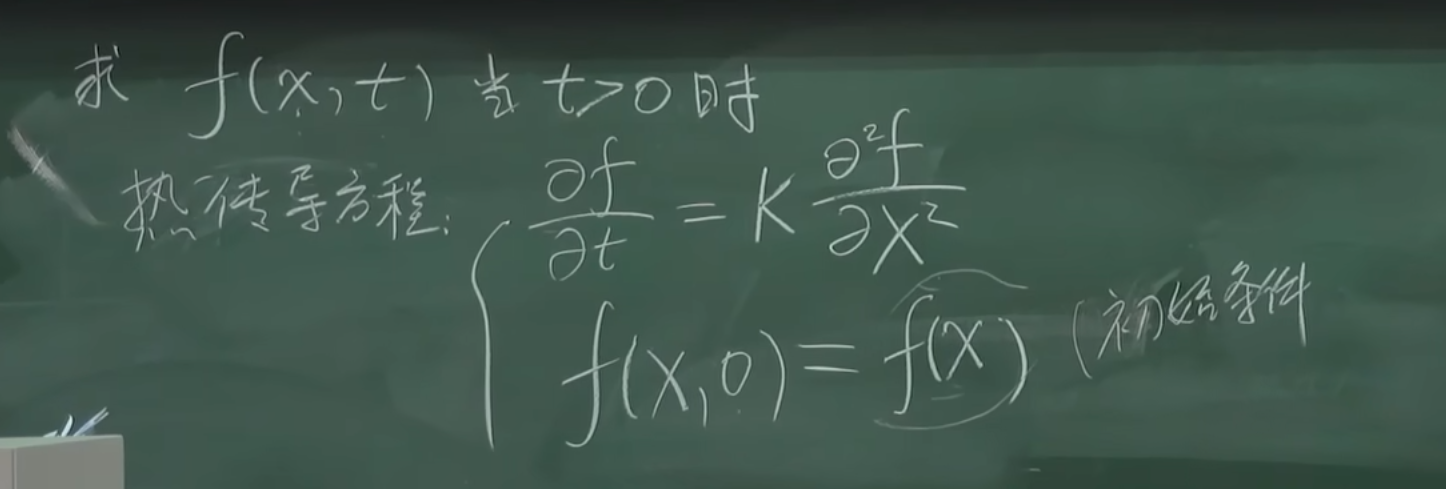 求 f(x,t) 当 t>0 时
热传导方程: { ∂f/∂t = K ∂²f/∂x²
f(x,0) = f(x) (初始条件